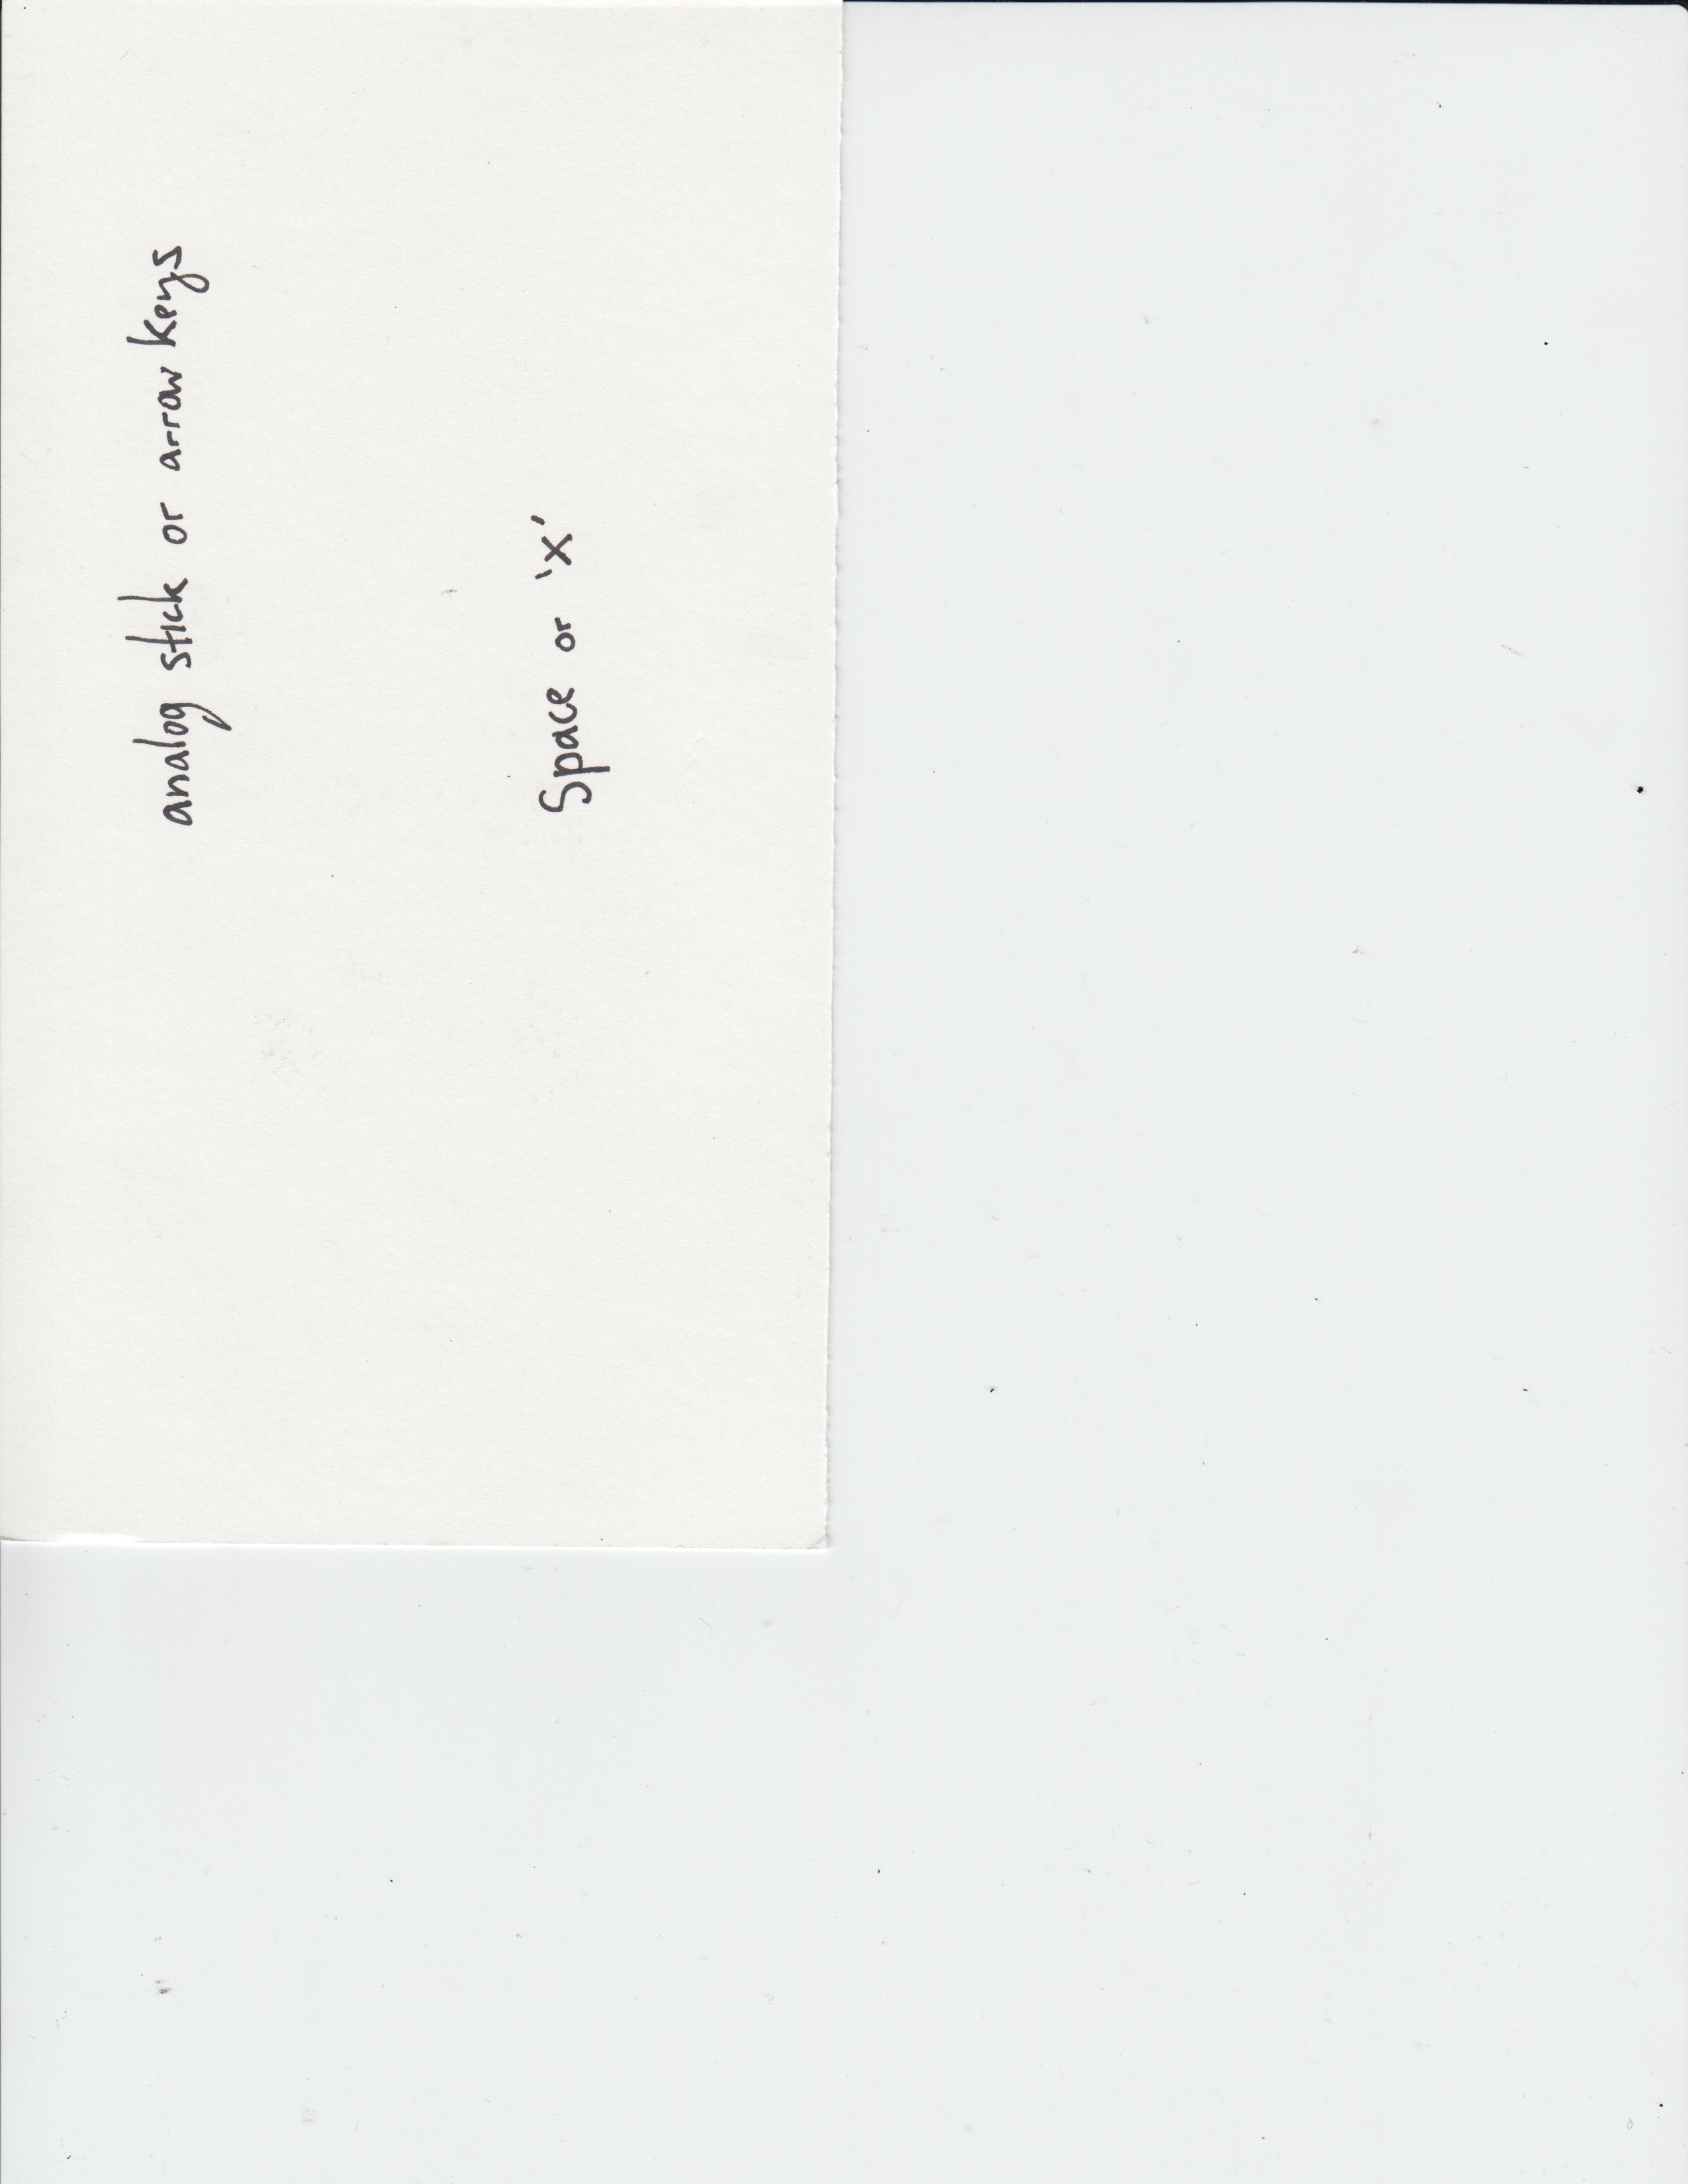 analog stick or arrow keys
Space or 'x'